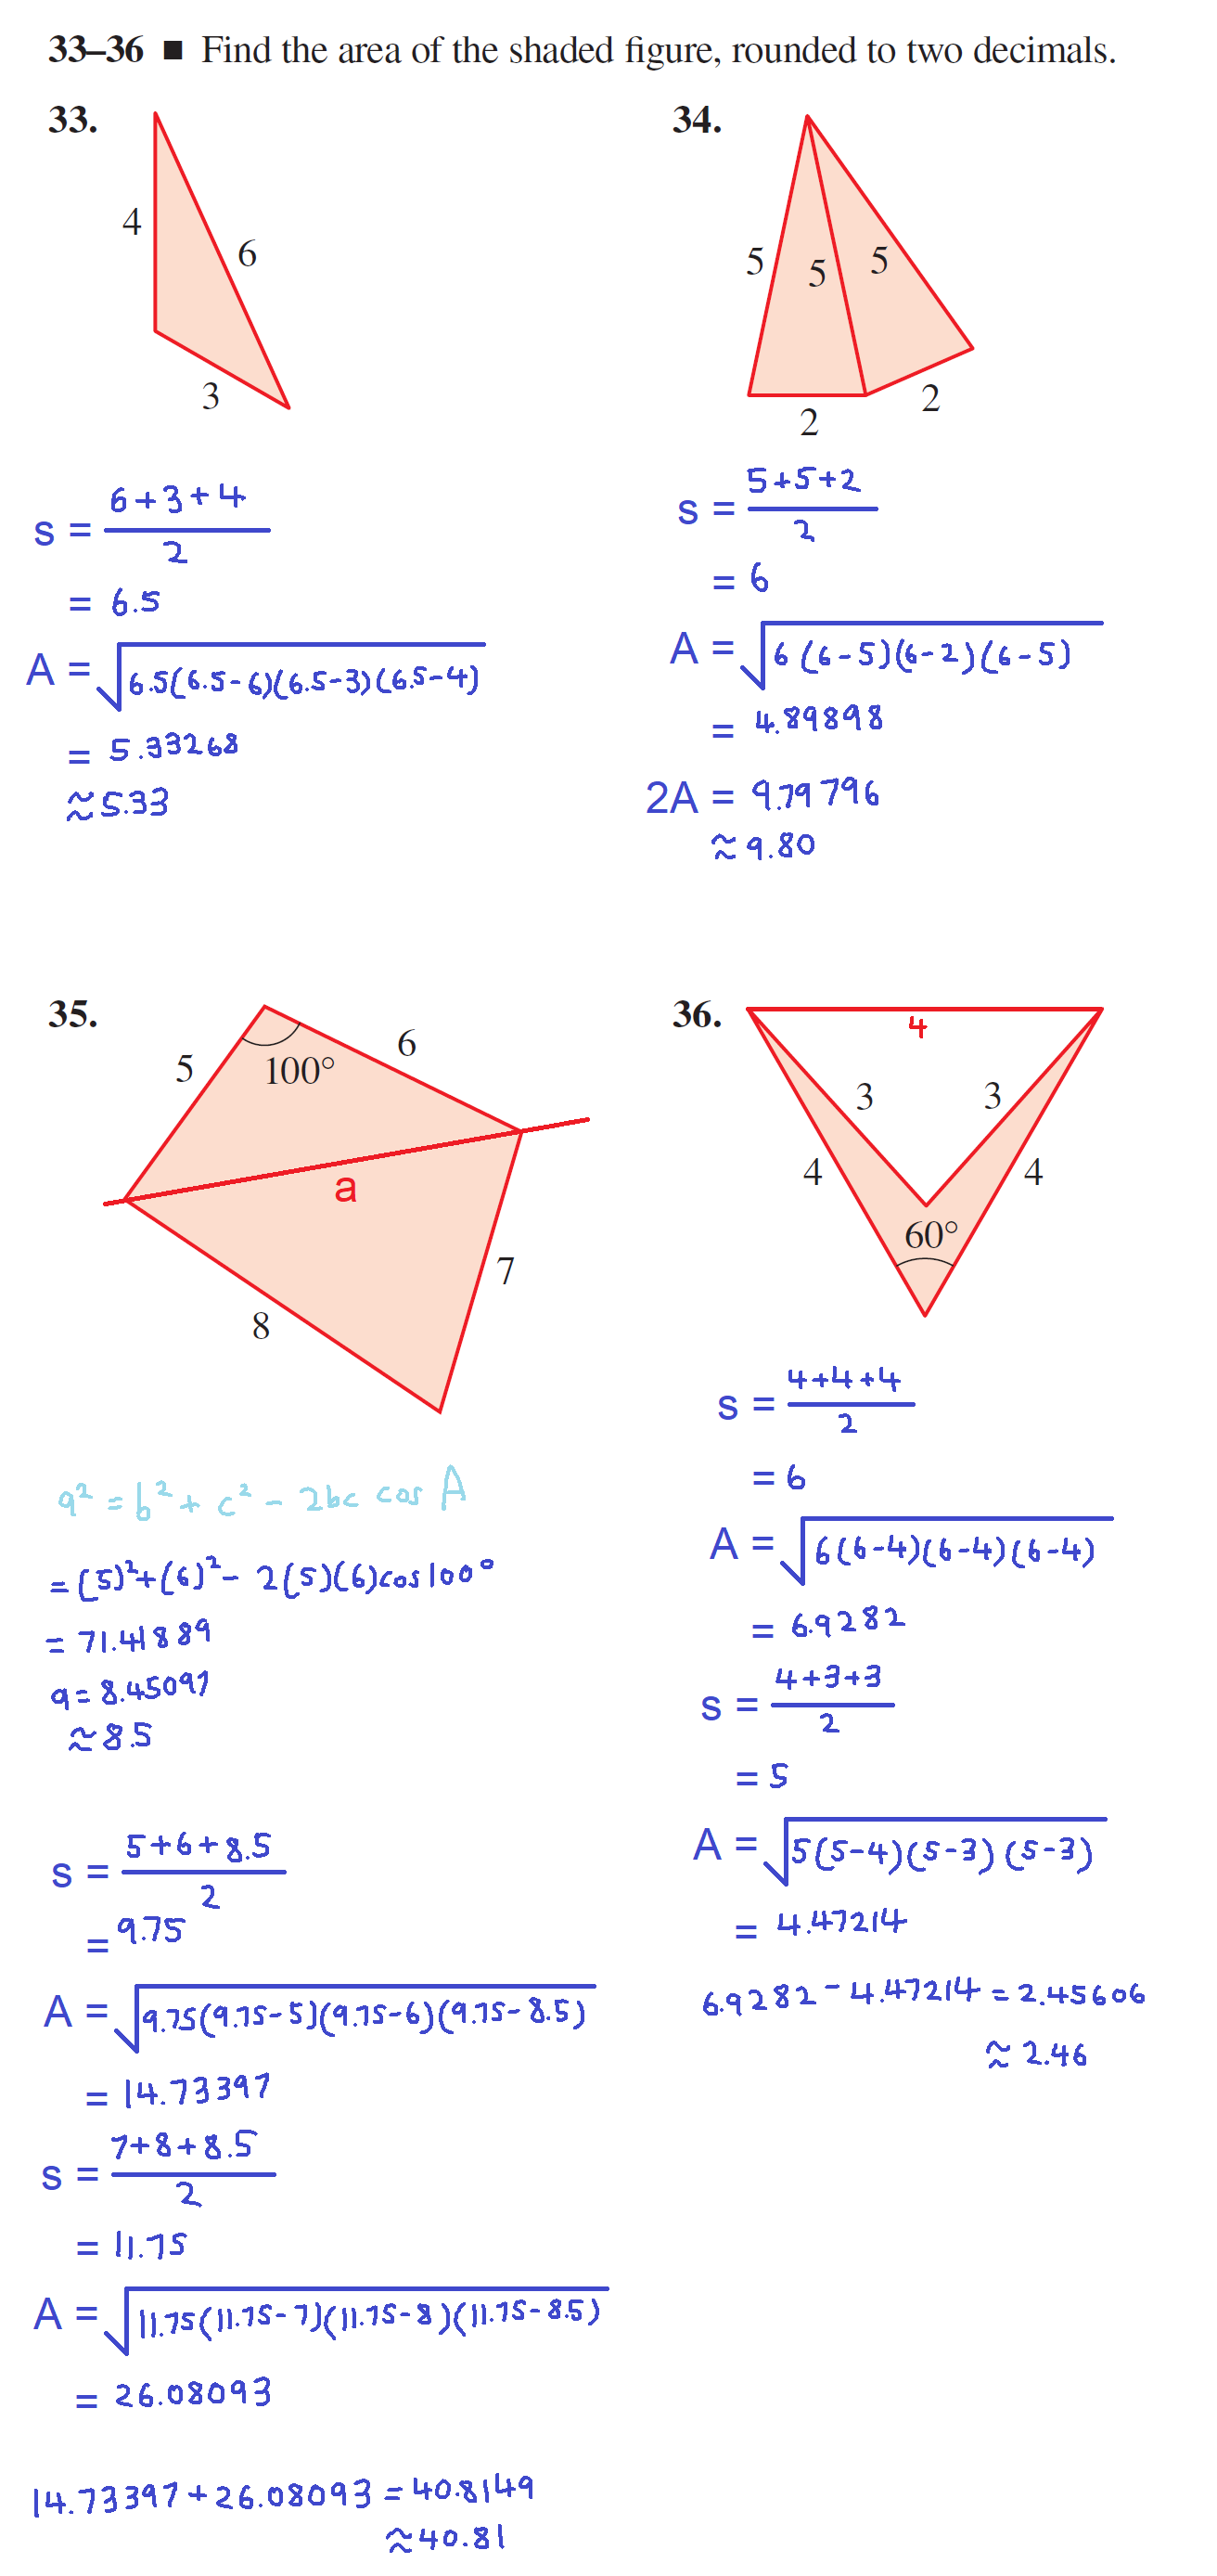 33–36 ■ Find the area of the shaded figure, rounded to two decimals.
33.
4
6
3
s = (6+3+4)/2
= 6.5
A = √(6.5(6.5-6)(6.5-3)(6.5-4))
= 5.33268
≈ 5.33
34.
5
5
5
2
2
s = (5+5+2)/2
= 6
A = √(6(6-5)(6-2)(6-5))
= 4.89898
2A = 9.79796
≈ 9.80
35.
5
100°
6
a
7
8
a² = b² + c² - 2bc cos A
= (5)²+(6)² - 2(5)(6)cos100°
= 71.41889
a = 8.45097
≈ 8.5
s = (5+6+8.5)/2
= 9.75
A = √(9.75(9.75-5)(9.75-6)(9.75-8.5))
= 14.73397
s = (7+8+8.5)/2
= 11.75
A = √(11.75(11.75-7)(11.75-8)(11.75-8.5))
= 26.08093
14.73397+26.08093 = 40.8149
≈ 40.81
36.
4
3
3
4
4
60°
s = (4+4+4)/2
= 6
A = √(6(6-4)(6-4)(6-4))
= 6.9282
s = (4+3+3)/2
= 5
A = √(5(5-4)(5-3)(5-3))
= 4.47214
6.9282 - 4.47214 = 2.45606
≈ 2.46